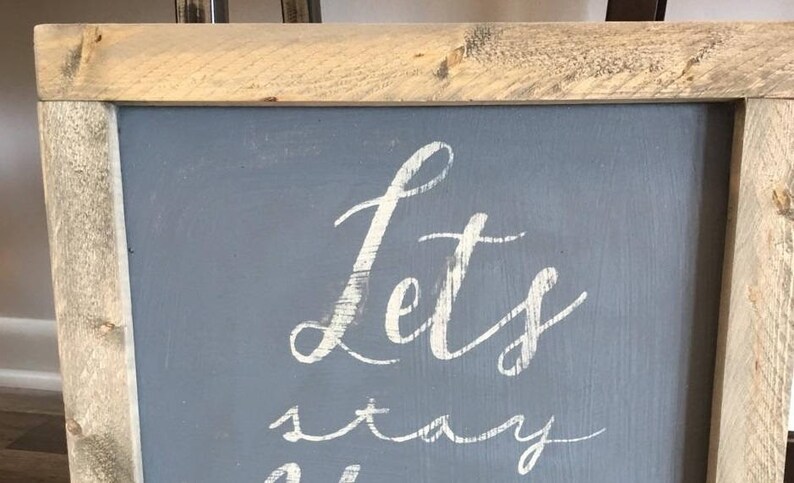 Lets
stay